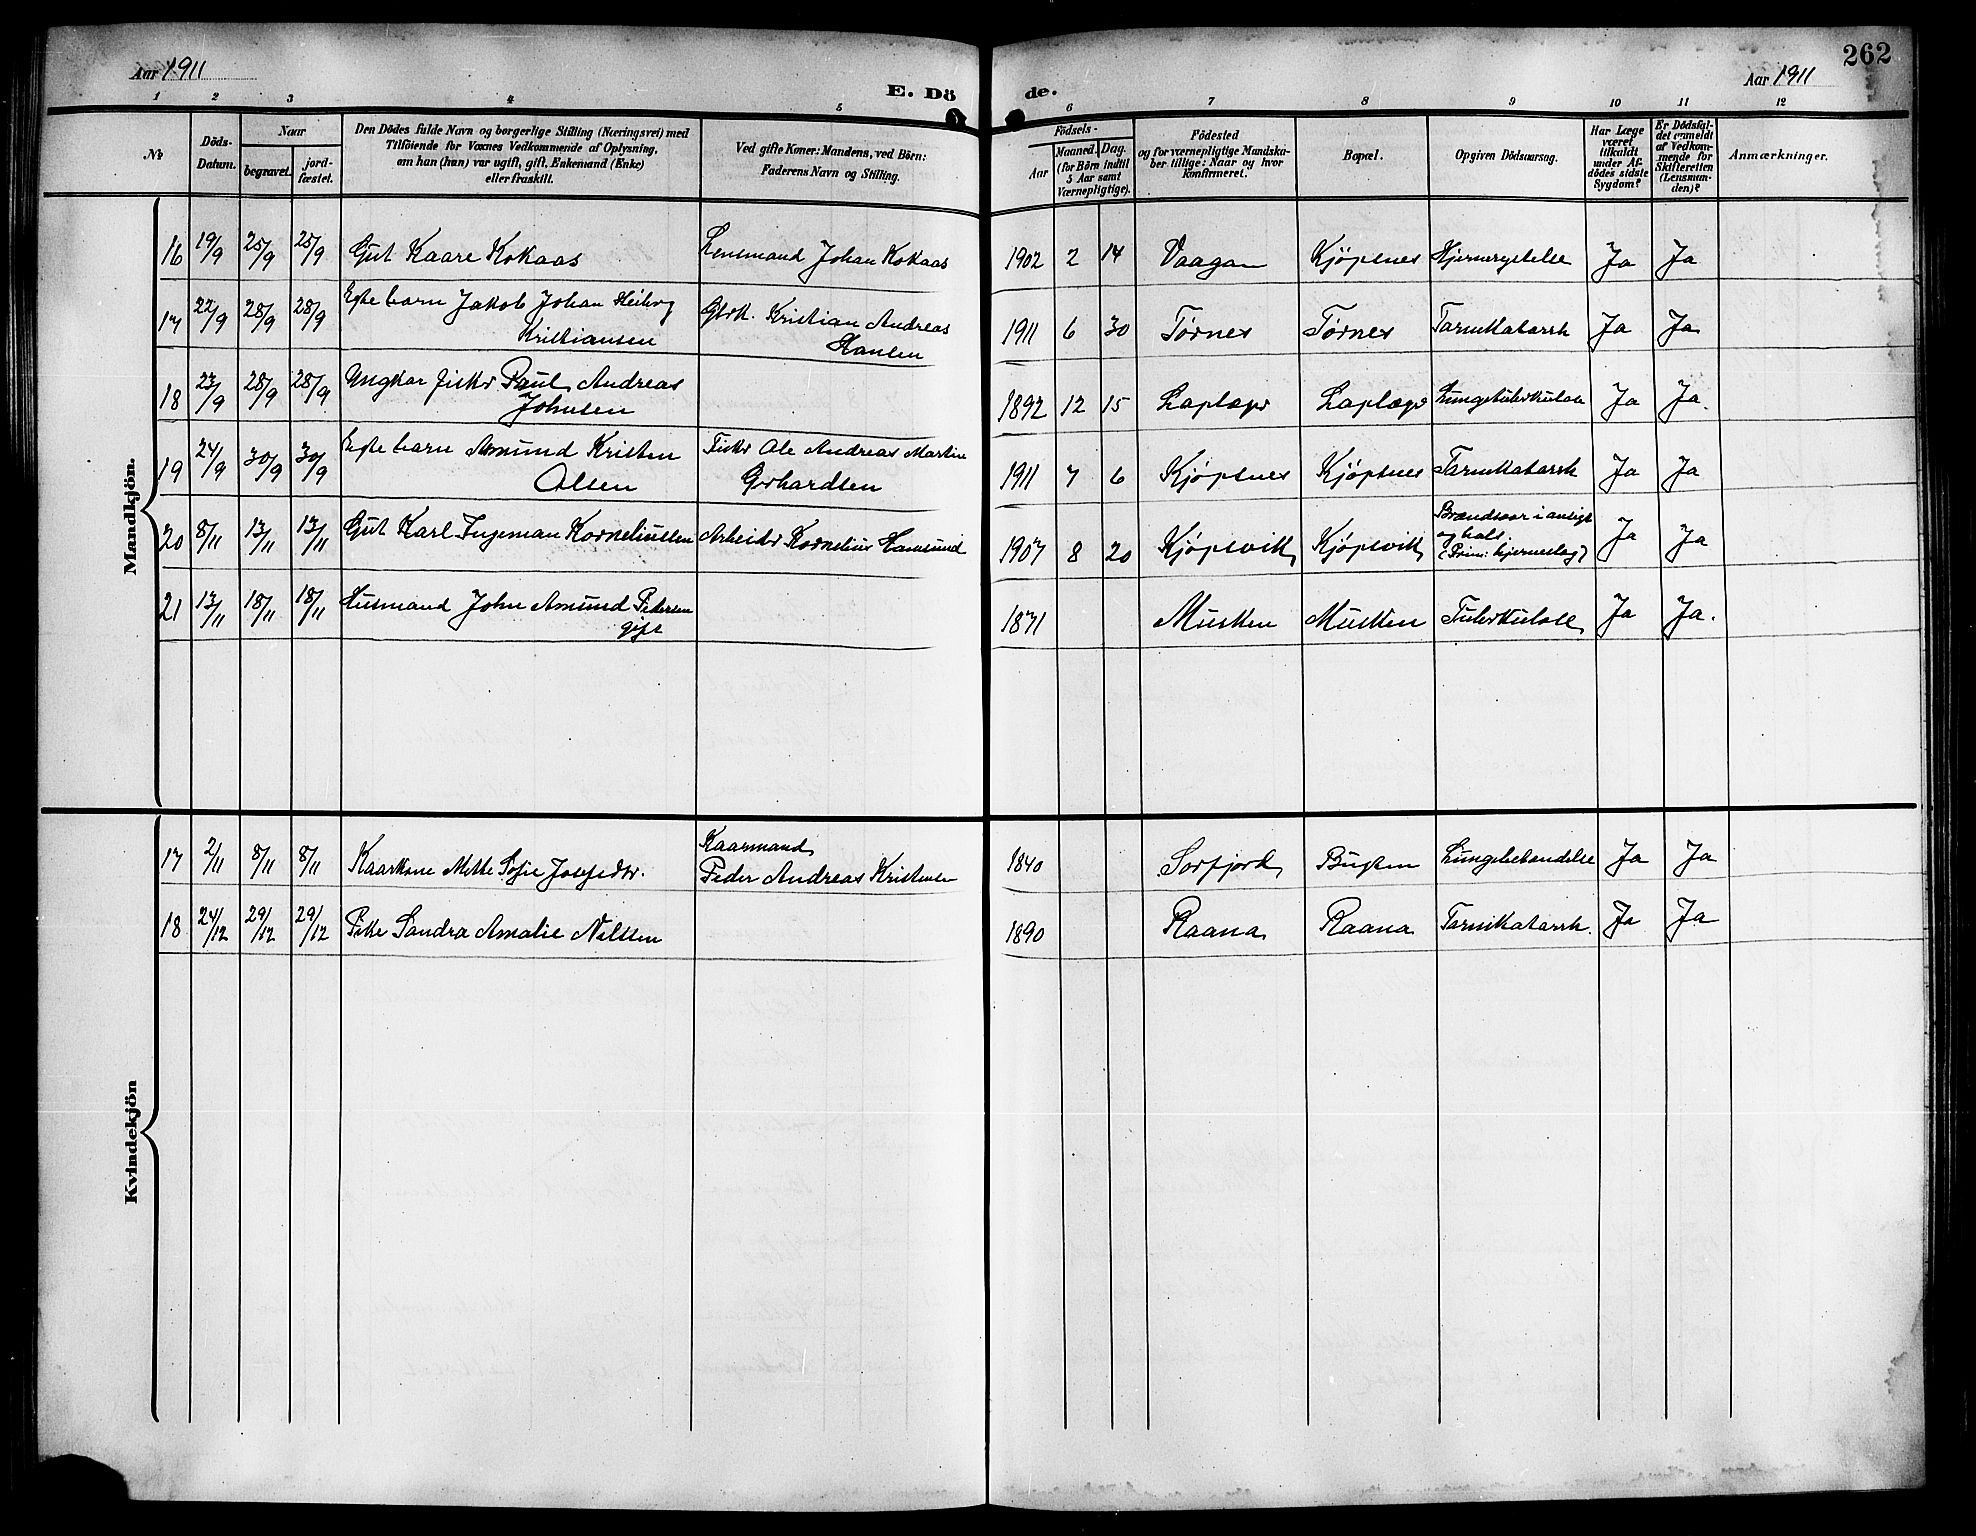 262
Aar 1911
Aar 1911
E. Dö de.
1 2 3 4 5 6 7 8 9 10 11 12
No
Döds-
Datum.
Naar
begravet.
jord-
fæstet.
Den Dödes fulde Navn og borgerlige Stilling (Næringsvei) med
Tilföiende for Voxnes Vedkommende af Oplysning,
om han (hun) var ugift, gift, Enkemand (Enke)
eller fraskilt.
Ved gifte Koner: Mandens, ved Börn:
Faderens Navn og Stilling.
Födsels-
Aar
Maaned. Dag.
(for Börn indtil
5 Aar samt
Værnepligtige).
Födested
og for værnepligtige Mandska-
ber tillige: Naar og hvor
konfirmeret.
Bopæl.
Opgiven Dödsaarsag.
Har Læge
været
tilkaldt
under Af-
dödes sidste
Sygdom?
Er Dödsfal-
det anmeldt
af Vedkom-
mende for
Skifteretten
(Lensman-
den)?
Anmærkninger.
Mandkjön.
16 19/9 25/9 25/9 Gut Kaare Kokaas Lensmand Johan Kokaas 1902 2 14 Vaagan Kjöpsnes Hjernerystelse Ja Ja
17 22/9 28/9 28/9 Egte barn Jakob Johan Heiberg
Kristiansen
Gbrk. Kristian Andreas
Hansen
1911 6 30 Tørnes Tørnes Tarmkatarrh Ja Ja
18 23/9 28/9 28/9 Ungkar fisker Paul Andreas
Johnsen
1892 12 15 Laplæger Laplæger Lungetuberkulose Ja Ja.
19 24/9 30/9 30/9 Egte barn Amund Kristen
Olsen
Fisker Ole Andreas Martin
Gerhardsen
1911 7 6 Kjöpsnes Kjöpsnes Tarmkatarrh Ja Ja
20 8/11 13/11 13/11 Gut Karl Ingeman Korneliussen Arbeider Kornelius Hamsund 1907 8 20 Kjöpsvik Kjöpsvik Brandsaar i ansigt
og hals.
(Prim: hjerneslag) Ja Ja
21 13/11 18/11 18/11 Husmand John Amund Pedersen
gift
1871 Musken Musken Tuberkulose Ja Ja.
Kvindekjön
17 2/11 8/11 8/11 Kaarkone Mette Sofie Josefsdtr. Kaarmand
Peder Andreas Kristensen
1840 Sörfjord Bugten Lungebetændelse Ja Ja
18 24/12 29/12 29/12 Pike Sandra Amalie Nilsen 1890 Raana Raana Tarmkatarrh. Ja Ja